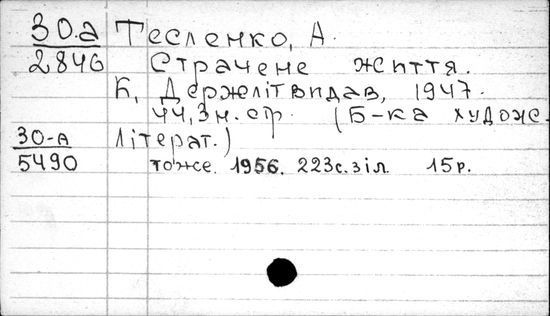 30.а Тесленко, А.
2846 Страчене життя.
К, Держлітвидав, 1947.
44,3н.ср. (Б-ка художе.
30-А літерат.)
5490 тоже. 1956. 223с.зіл. 15р.